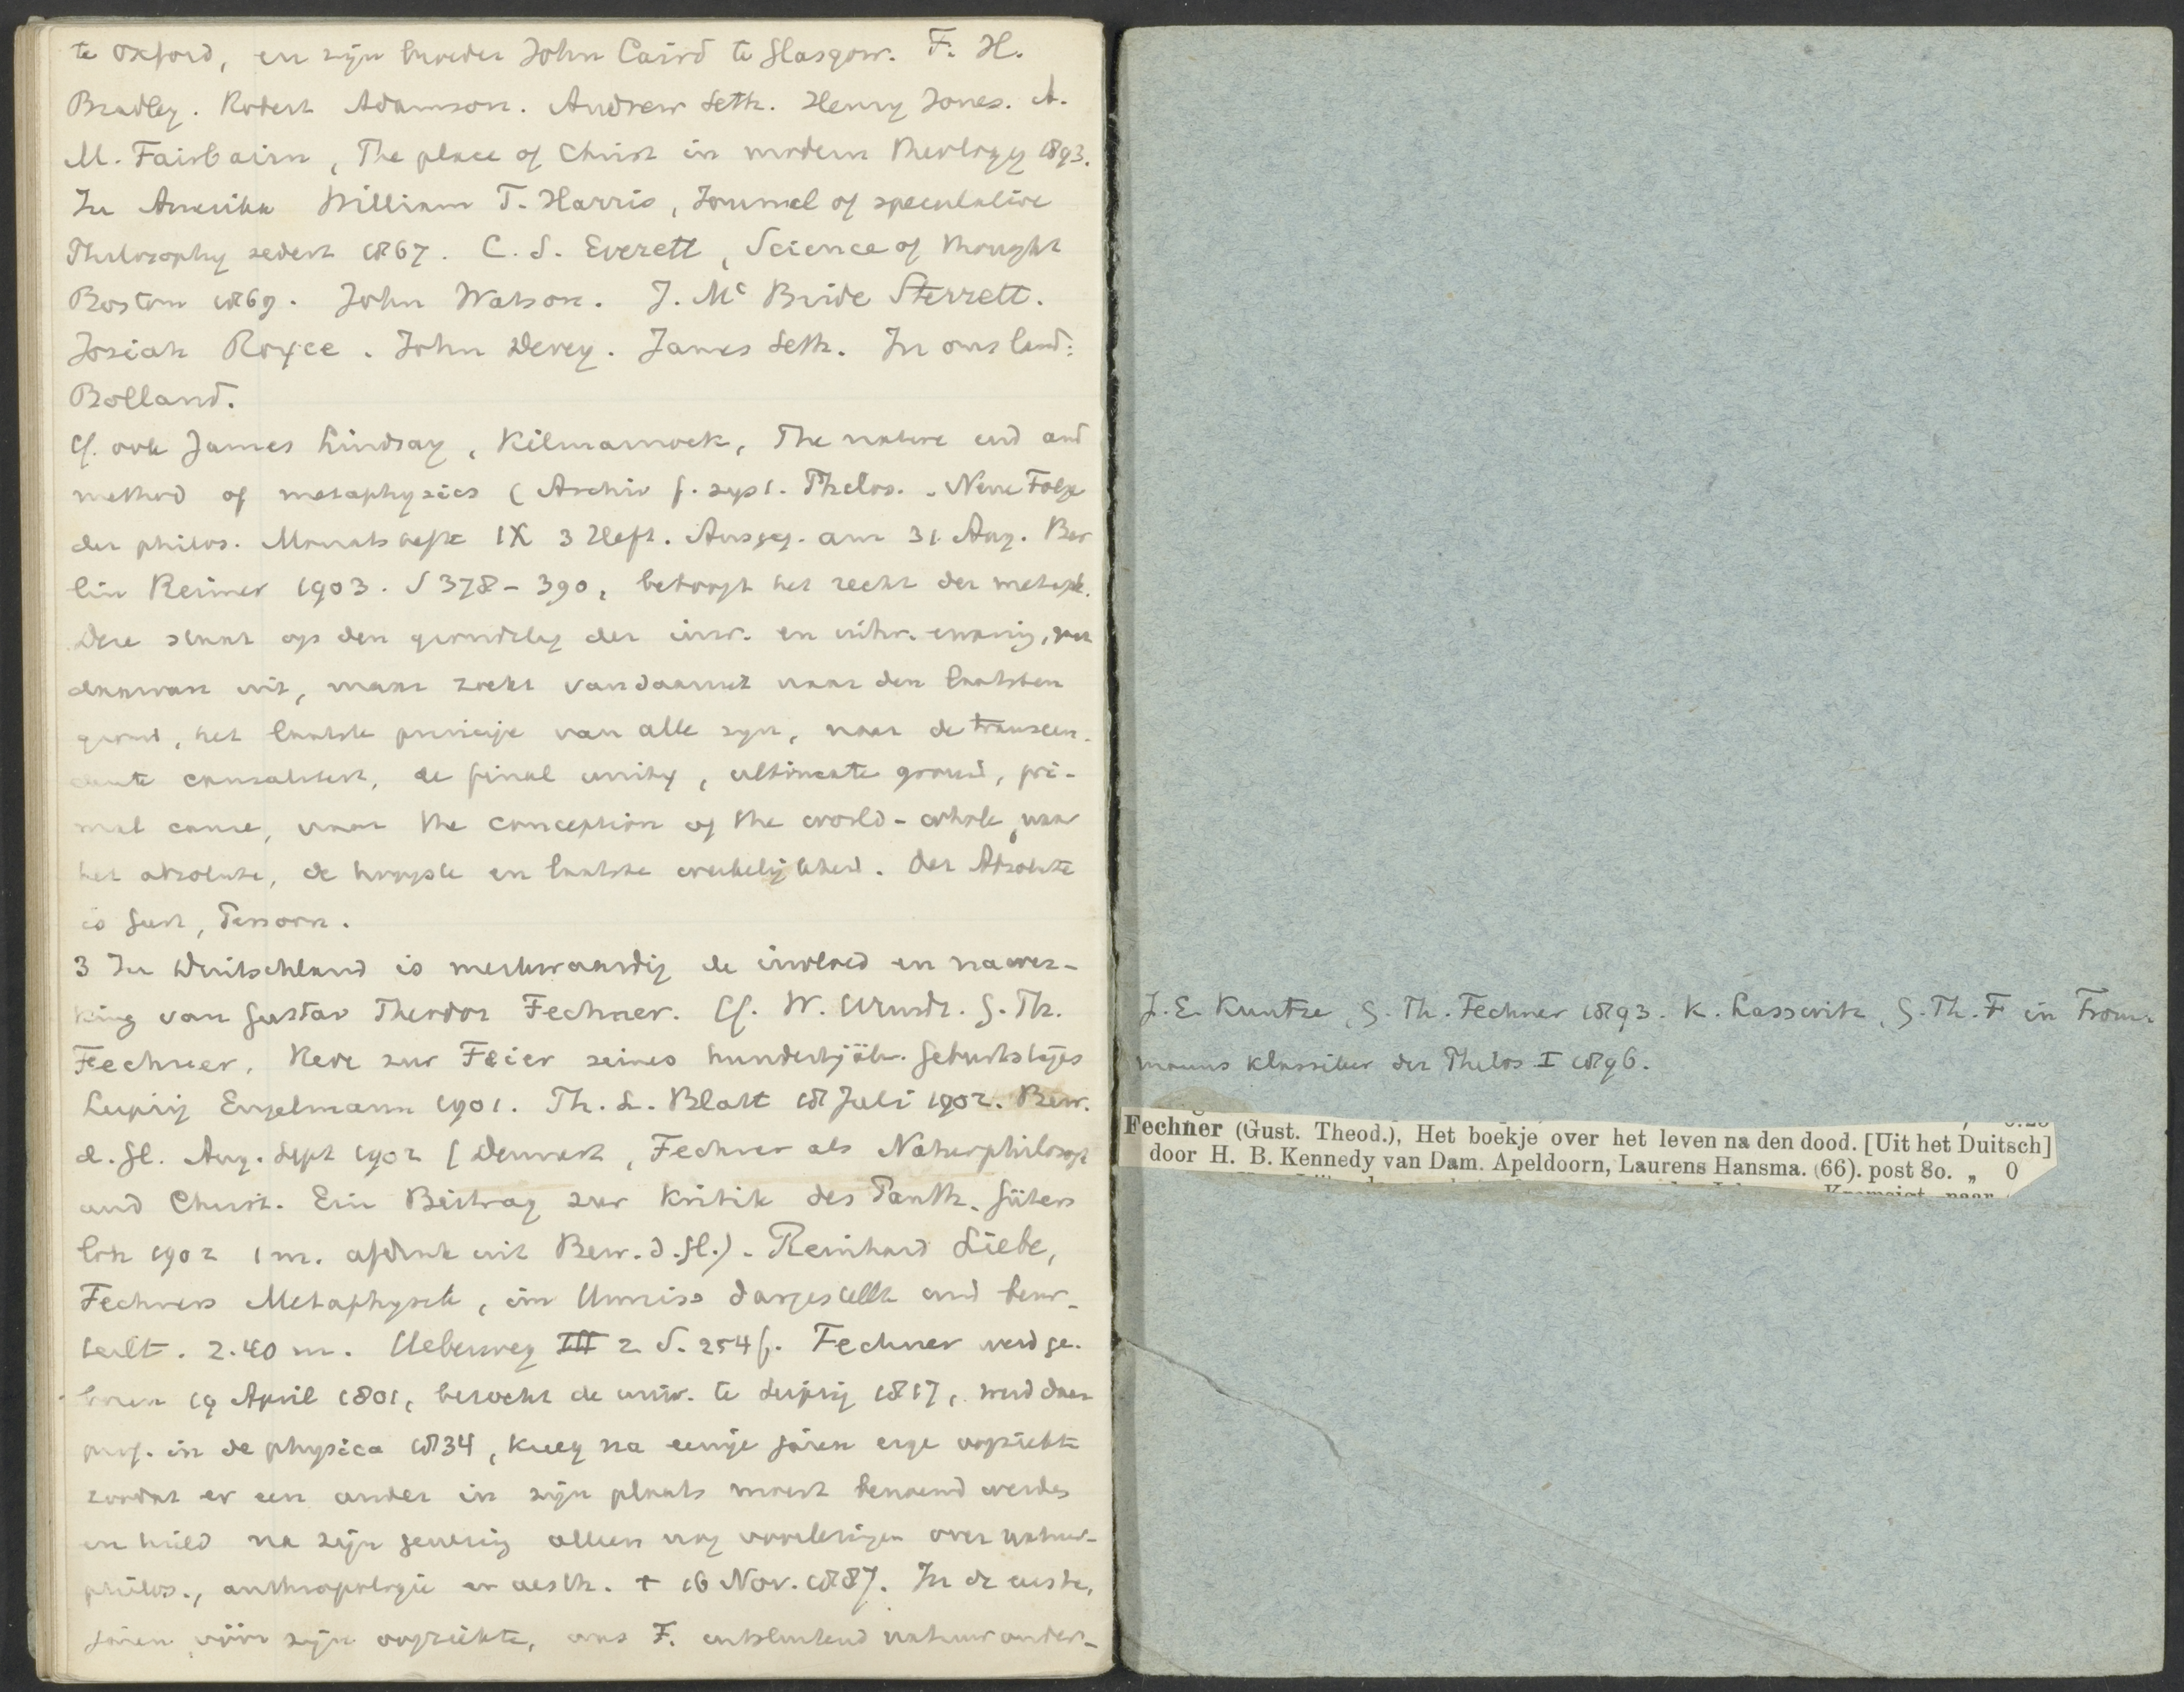 te Oxford, en zijn broeder John Caird te Glasgow. F. H.
Bradley. Robert Adamson. Andrew Seth. Henry Jones. A.
M. Fairbairn, The place of Christ in modern theology 1893.
In Amerika William T. Harris, Journal of speculative
Philosophy sedert 1867. C. S. Everett, Science of thought
Boston 1869. John Watson. J. Mc Bride Sterrett.
Josiah Royce. John Dewey. James Seth. In ons land:
Bolland.
Cf. ook James Lindsay, Kilmarnock, The nature end and
method of metaphysics (Archiv f. syst. Philos. Neue Folge
der philos. Monatshefte IX 3 Heft. Ausgeg. am 31 Aug. Ber
lin Reimer 1903. S 378-390, betoogt het recht der metaph.
Deze staat op den grondslag der inw. en uitw. ervaring, gaat
daarvan uit, maar zoekt vandaaruit naar den laatsten
grond, het laatste principe van alle zijn, naar de transcen-
dente causaliteit, de final unity, ultimate ground, pri-
mal cause, naar the conception of the world-whole, naar
het absolute, de hoogste en laatste werkelijkheid. Het Absolute
is Geest, Persoon.
3 In Duitschland is merkwaardig de invloed en nawer-
king van Gustav Theodor Fechner. Cf. W. Wundt. G. Th.
Fechner, Rede zur Feier seines hundertjähr. Geburtstages
Leipzig Engelmann 1901. Th. L. Blatt 18 Juli 1902. Bew.
d. Gl. Aug. Sept 1902 [Dennert, Fechner als Naturphilosoph
und Christ. Ein Beitrag zur Kritik des Panth. Güters
loh 1902 1 m. afdruk uit Bew. d. Gl.). Reinhard Liebe,
Fechners Metaphysik, im Umriss dargestellt und beur-
teilt. 2.40 m. Ueberweg III 2 S. 254 f. Fechner werd ge-
boren 19 April 1801, bezocht de univ. te Leipzig 1817, werd daar
prof. in de physica 1834, kreeg na eenige jaren erge oogziekte
zoodat er een ander in zijn plaats moest benoemd werden
en hield na zijn genezing alleen nog voorlezingen over natuur-
philos., anthropologie en aesth. † 18 Nov. 1887. In de eerste,
jaren vóór zijn oogziekte, was F. uitsluitend natuuronder-
J. E. Kuntze, G. Th. Fechner 1893. K. Lasswitz, G. Th. F in From-
manns klassiker der Philos I 1896.
Fechner (Gust. Theod.), Het boekje over het leven na den dood. [Uit het Duitsch]
door H. B. Kennedy van Dam. Apeldoorn, Laurens Hansma. (66). post 8o. „ 0